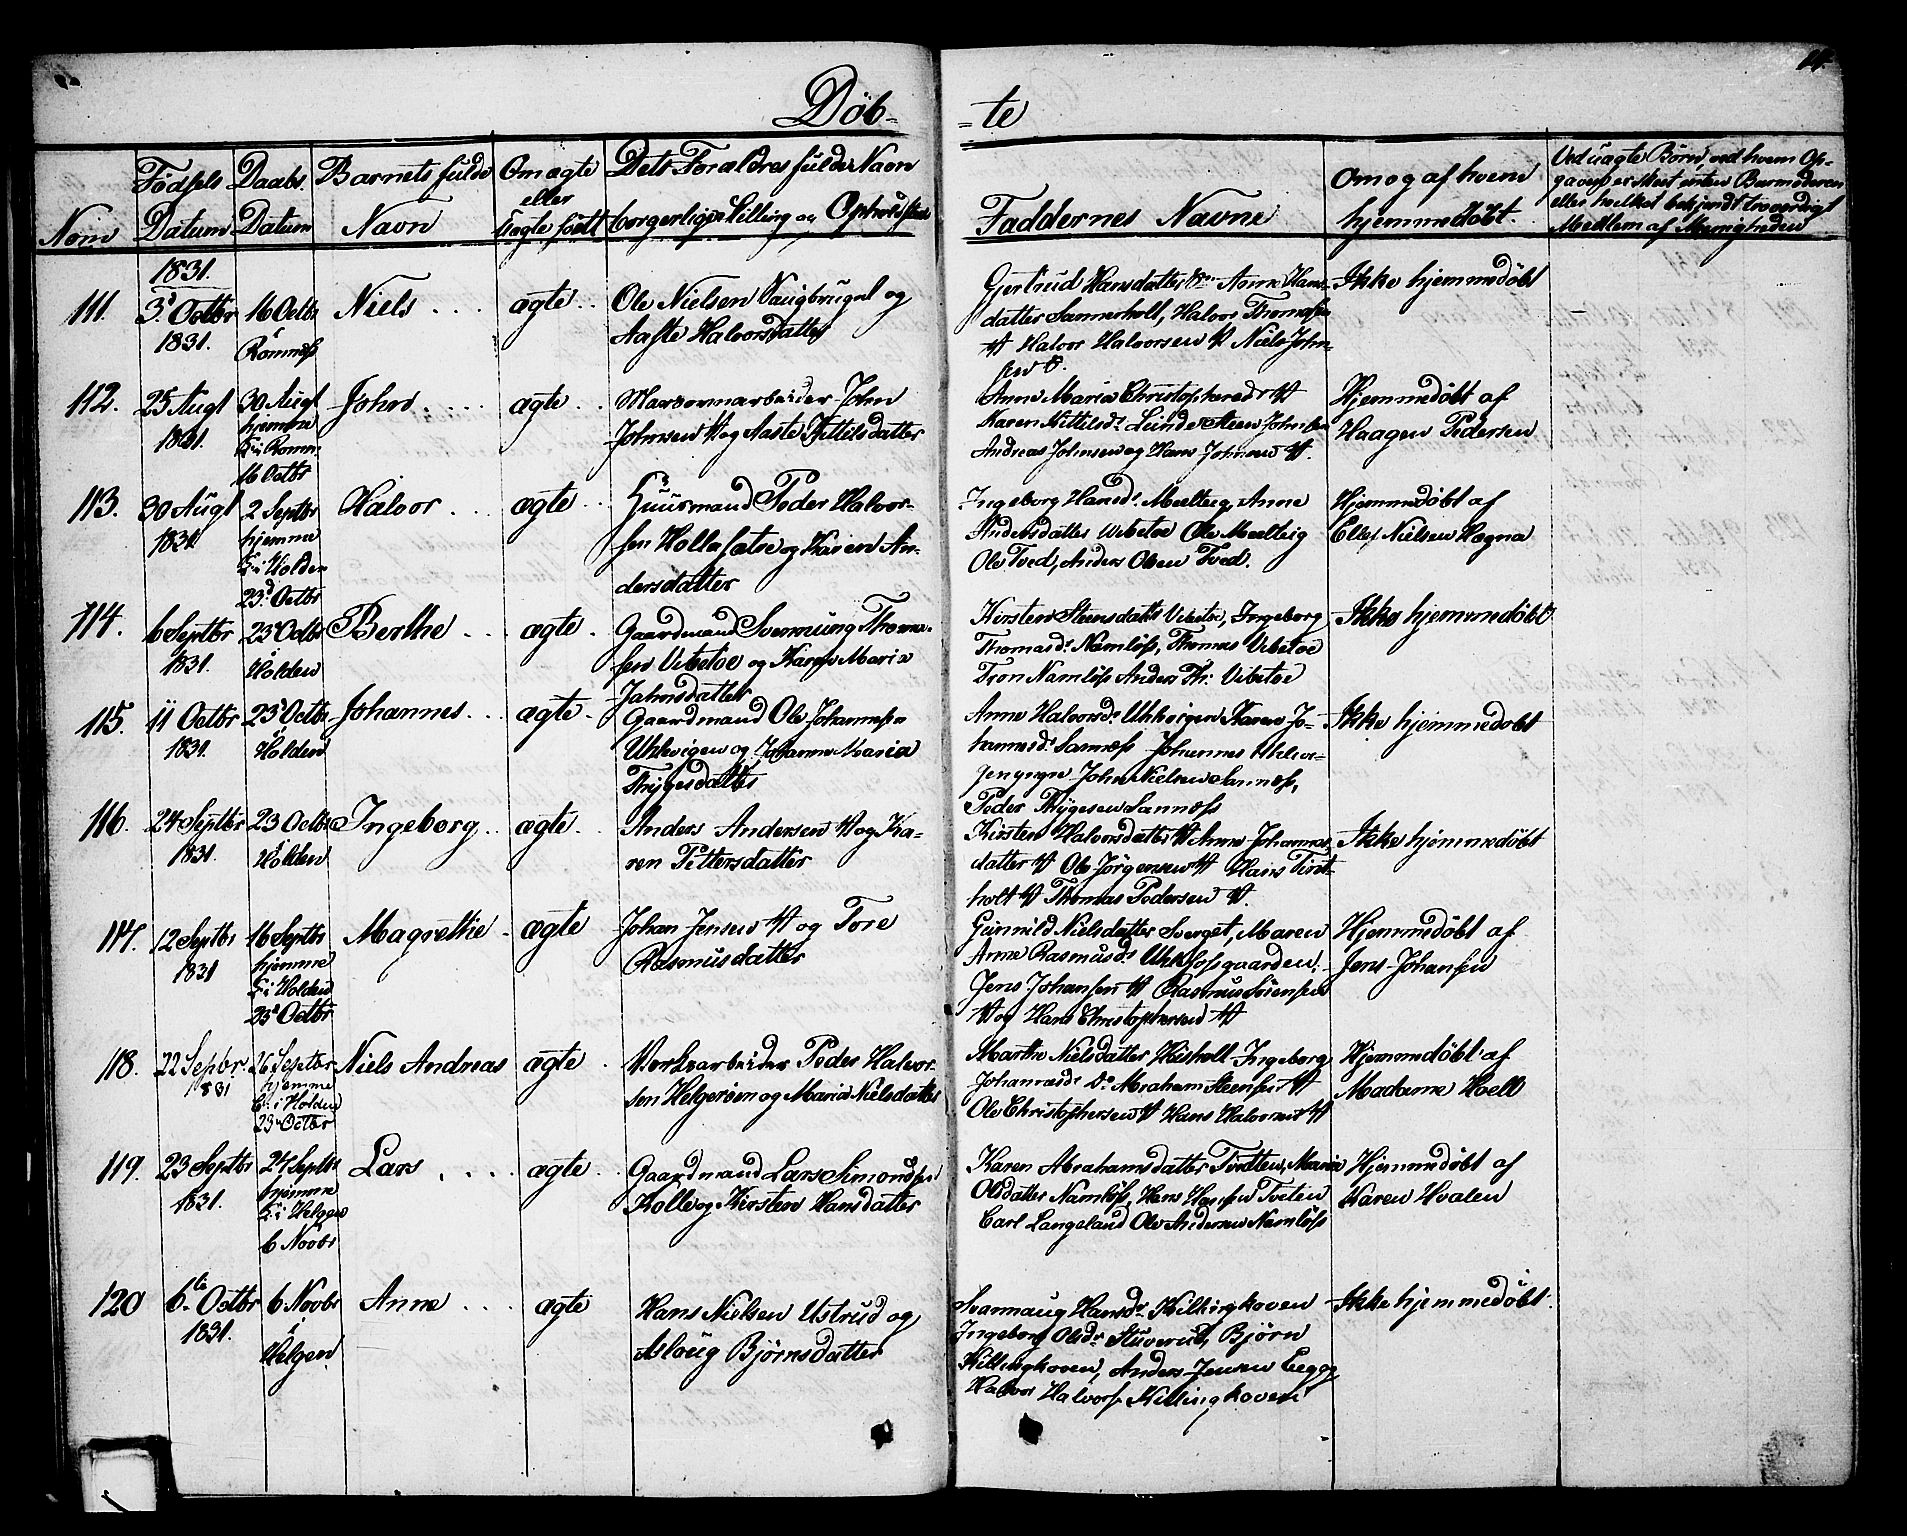 14.
Døb- -te
Nom
Fødsels Datum
Daabs Datum
Barnets fulde Navn
Om ægte eller uægte født
Dets Forældres fulde Navn borgerlige Stilling og Opholdsted
Faddernes Navne
Om og af hvem hjemmedøbt.
Ved uægte Børn, ved hvem Op-
gaven er skeet enten Barmoderen
eller hvilket bekjendt troværdigt
Medlem af Menigheden
1831.
111. 3die Octbr 1831. 16 Octbr i Romnæs Niels ægte
Ole Nielsen Vaugbrugal og
Aaste Halvorsdatter
Gjertrud Hansdatter Anne Hans-
datter Sannerholt, Halvor Thomassen
V Halvor Halvorsen V Niels John-
sen
Ikke hjemmedøbt
112. 25 Augt 1831. 30 Augt hjemme K: i Romn: 16 Octbr John ægte
Masovnarbeider John
Johnsen V og Aaste Kittilsdatter
Anne Maria Christophersdr V
Karen Kittilsdr Lunde Steen Johnsen
Andreas Johnsen og Hans Johnsen V.
Hjemmedøbt af
Haagen Pedersen
113. 30 Augt 1831. 2 Septbr hjemme K: i Holden 23d Octbr Halvor ægte
Huusmand Peder Halvor-
sen Hollasætre og Karen An-
dersdatter
Ingeborg Hansdr Mælteig, Anne
Andersdatter Vibetoe Ole Mælteig
Ole Tved, Anders Olsen Tved.
Hjemmedøbt af
Ellef Nielsen Hægna
114. 6 Septbr 1831. 23d Octbr i Holden Berthe ægte
Gaardmand Svennung Thoma-
sen Vibetoe og Karen Maria
Jahnsdatter
Kirsten Steensdatt Vibetoe, Ingeborg
Thomasdr Namløss, Thomas Vibetoe
Tron Namløss Anders Th: Vibetoe
Ikke hjemmedøbt
115. 11 Octbr 1831. 23d Octbr i Holden Johannes ægte
Gaardmand Ole Johannesen
Uhlvigen og Johanne Maria
Thygesdatter
Anne Halvorsdr Uhlvigen Karen Jo-
hannesdr Sannæss Johannes Uhlvi-
gen yngre John Nielsen Sannæss,
Peder Thygesen Sannæss
Ikke hjemmedøbt
116. 24 Septbr 1831. 23 Octbr i Holden Ingeborg ægte
Anders Andersen V og Ka-
ren Pettersdatter
Kirsten Halvorsdatter V Anne Johannes-
datter V Ole Jørgensen V Hans Tint-
holt V Thomas Pedersen V.
Ikke hjemmedøbt
117. 12 Septbr 1831 16 Septbr hjemme K: i Holden 23d Octbr Magrethe ægte
Johan Jensen V og Tore
Rasmusdatter
Gunnild Nielsdatter Sverget, Maren
Anne Rasmusdr Uhlfossgaarden,
Jens Johansen V Rasmus Sørensen
V og Hans Christophersen V
Hjemmedøbt af
Jens Johansen
118. 22 Septbr 1831 26 Septbr hjemme K: i Holden 23d Octbr Niels Andreas ægte
Værksarbeider Peder Halvor-
sen Helgerøen og Maria Nielsdatter
Marthe Nielsdatter Hisholt Ingeborg
Johannesdr Abraham Steensen V
Ole Christophersen V Hans Halvorsen V
Hjemmedøbt af
Madame Hoell
119. 23 Septbr 1831. 24 Septbr hjemme K: i Helgen 6 Novbr Lars ægte
Gaardmand Lars Simonsen
Kolle og Kirsten Hansdatter
Karen Abrahamsdatter Tvetten, Maria
Olsdatter Namløss, Hans Hansen Tveten
Carl Langeland Ole Andersen Namløss
Hjemmedøbt af
Karen Hvalen
120 6te Octbr 1831. 6 Novbr i Helgen Anne ægte
Hans Nielsen Ustrud og
Aslaug Bjørnsdatter
Svannaug Hansdr Killingkoven
Ingeborg Olsdr Stuverud, Bjørn
Killingkoven, Anders Jensen Eegge
Halvor Halvors. Killingkoven
Ikke hjemmedøbt.